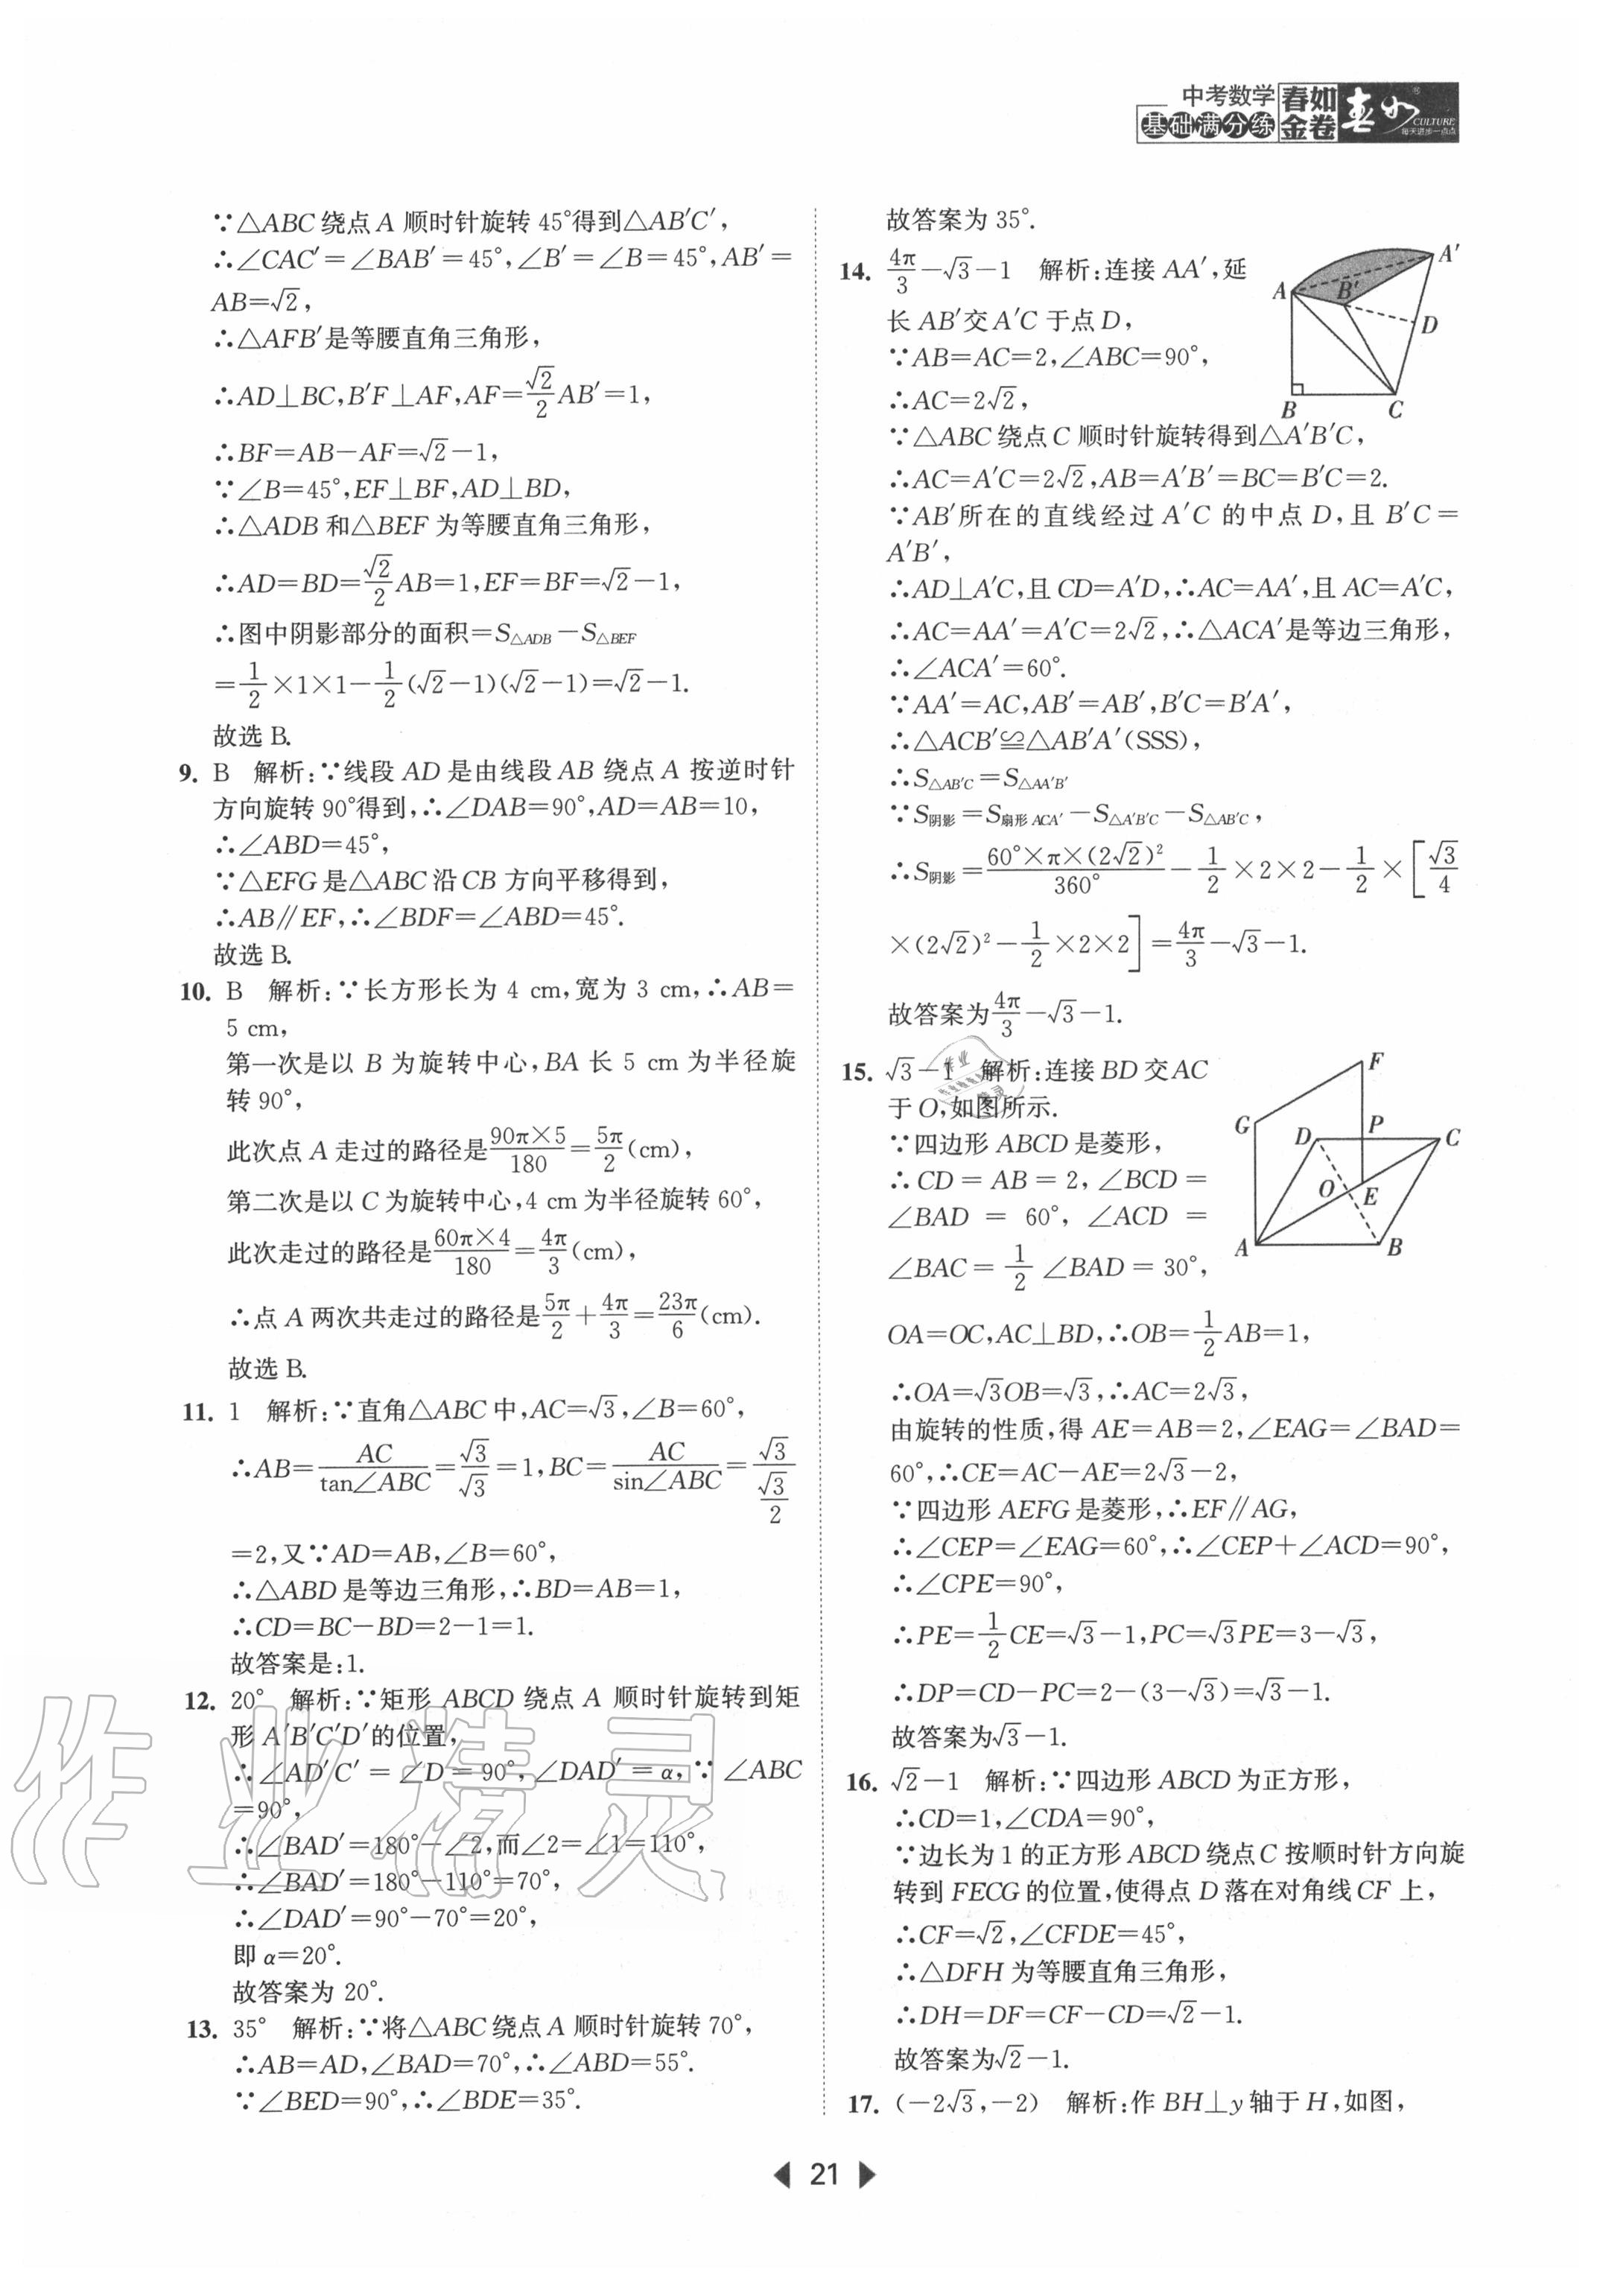 中考数学
基础满分练
春如金卷
春如
CULTURE
每天进步一点点
∵△ABC绕点A 顺时针旋转45°得到△AB′C′,
∴∠CAC′=∠BAB′=45°,∠B′=∠B=45°,AB′=
AB=√2,
∴△AFB′是等腰直角三角形,
∴AD⊥BC,B′F⊥AF,AF=√2/2 AB′=1,
∴BF=AB−AF=√2−1,
∵∠B=45°,EF⊥BF,AD⊥BD,
∴△ADB和△BEF为等腰直角三角形,
∴AD=BD=√2/2 AB=1,EF=BF=√2−1,
∴图中阴影部分的面积=S△ADB−S△BEF
=1/2×1×1−1/2(√2−1)(√2−1)=√2−1.
故选B.
9. B 解析:∵线段AD是由线段AB绕点A按逆时针
方向旋转90°得到,∴∠DAB=90°,AD=AB=10,
∴∠ABD=45°,
∵△EFG是△ABC沿CB方向平移得到,
∴AB∥EF,∴∠BDF=∠ABD=45°.
故选B.
10. B 解析:∵长方形长为4 cm,宽为3 cm,∴AB=
5 cm,
第一次是以B为旋转中心,BA长5 cm为半径旋
转90°,
此次点A走过的路径是90π×5/180=5π/2(cm),
第二次是以C为旋转中心,4 cm为半径旋转60°,
此次走过的路径是60π×4/180=4π/3(cm),
∴点A两次共走过的路径是5π/2+4π/3=23π/6(cm).
故选B.
11. 1 解析:∵直角△ABC中,AC=√3,∠B=60°,
∴AB=AC/tan∠ABC=√3/√3=1,BC=AC/sin∠ABC=√3/(√3/2)
=2,又∵AD=AB,∠B=60°,
∴△ABD是等边三角形,∴BD=AB=1,
∴CD=BC−BD=2−1=1.
故答案是:1.
12. 20° 解析:∵矩形ABCD绕点A 顺时针旋转到矩
形A′B′C′D′的位置,
∴∠AD′C′=∠D=90°,∠DAD′=α,∵∠ABC
=90°,
∴∠BAD′=180°−∠2,而∠2=∠1=110°,
∴∠BAD′=180°−110°=70°,
∴∠DAD′=90°−70°=20°,
即α=20°.
故答案为20°.
13. 35° 解析:∵将△ABC绕点A 顺时针旋转70°,
∴AB=AD,∠BAD=70°,∴∠ABD=55°.
∵∠BED=90°,∴∠BDE=35°.
故答案为35°.
14. 4π/3−√3−1 解析:连接AA′,延
长AB′交A′C于点D,
∵AB=AC=2,∠ABC=90°,
∴AC=2√2,
∵△ABC绕点C 顺时针旋转得到△A′B′C,
∴AC=A′C=2√2,AB=A′B′=BC=B′C=2.
∵AB′所在的直线经过A′C的中点D,且B′C=
A′B′,
∴AD⊥A′C,且CD=A′D,∴AC=AA′,且AC=A′C,
∴AC=AA′=A′C=2√2,∴△ACA′是等边三角形,
∴∠ACA′=60°.
∵AA′=AC,AB′=AB′,B′C=B′A′,
∴△ACB′≌△AB′A′(SSS),
∴S△AB′C=S△AA′B′
∵S阴影=S扇形ACA′−S△A′B′C−S△AB′C,
∴S阴影=60°×π×(2√2)²/360°−1/2×2×2−1/2×[√3/4
×(2√2)²−1/2×2×2]=4π/3−√3−1.
故答案为4π/3−√3−1.
A
A′
B′
D
B
C
15. √3−1 解析:连接BD交AC
于O,如图所示.
∵四边形ABCD是菱形,
∴CD=AB=2,∠BCD=
∠BAD=60°,∠ACD=
∠BAC=1/2∠BAD=30°,
OA=OC,AC⊥BD,∴OB=1/2AB=1,
∴OA=√3OB=√3,∴AC=2√3,
由旋转的性质,得AE=AB=2,∠EAG=∠BAD=
60°,∴CE=AC−AE=2√3−2,
∵四边形AEFG是菱形,∴EF∥AG,
∴∠CEP=∠EAG=60°,∴∠CEP+∠ACD=90°,
∴∠CPE=90°,
∴PE=1/2CE=√3−1,PC=√3PE=3−√3,
∴DP=CD−PC=2−(3−√3)=√3−1.
故答案为√3−1.
F
G
D
P
C
O
E
A
B
16. √2−1 解析:∵四边形ABCD为正方形,
∴CD=1,∠CDA=90°,
∵边长为1的正方形ABCD绕点C按顺时针方向旋
转到FECG的位置,使得点D落在对角线CF上,
∴CF=√2,∠CFDE=45°,
∴△DFH为等腰直角三角形,
∴DH=DF=CF−CD=√2−1.
故答案为√2−1.
17. (−2√3,−2) 解析:作BH⊥y轴于H,如图,
21
作业精灵